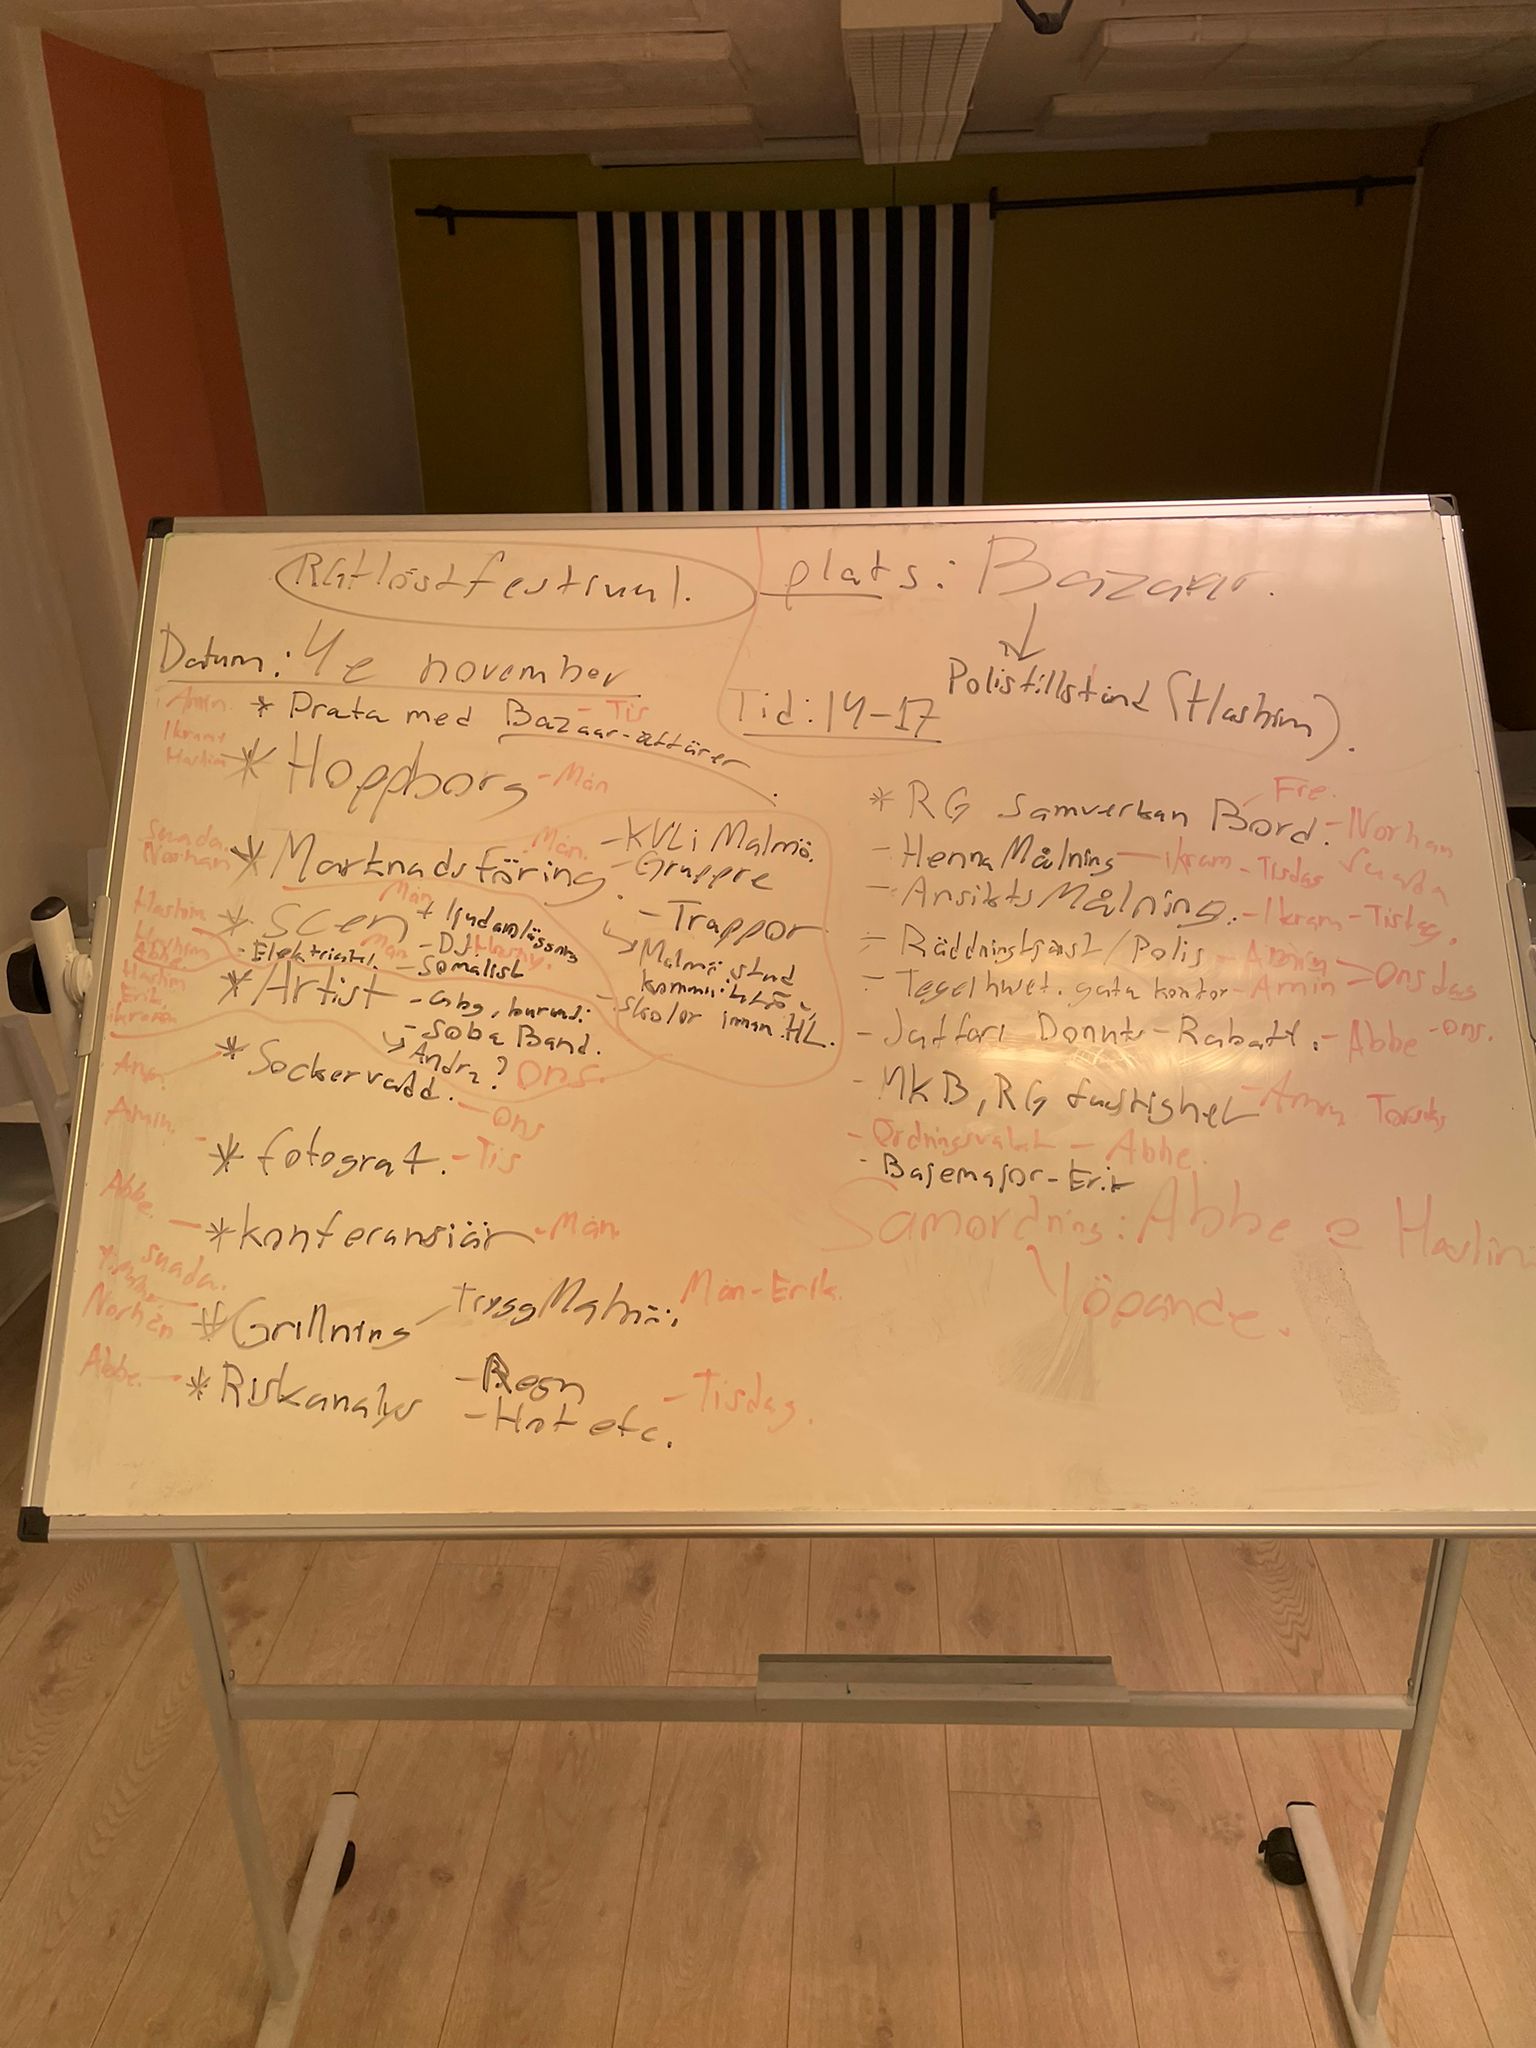 Datum: 4e november
plats: Bazaar.
Polistillstånd (Hashim).
Tid: 14-17
Amin.
* Prata med Bazaar-affärer - Tis
Hashim
* Hoppborg - Mån
Suada.
Norhan
* Marknadsföring. Mån.
- KVLi Malmö.
- Gruppre
- Trappor
Malmö stud
- Skolor innan HL.
Hashim
* Scen + ljudanläggning Mån
Abbe.
- DJ!
- Somalist
Hashim
Erik
* Artist
- Soba Band.
Andra? Ons.
* Sockervadd. - Ons
Amin.
* fotograf. - Tis
Abbe.
* konferansiär - Mån.
Suada.
Norhan
* Grillning Trygg Malmö. Mån - Erik.
Abbe. - * Riskanalys
- Regn
- Hot etc. - Tisdag.
* RG Samverkan Bord. - Norhan Fre.
Suada
- Henna Målning - ikram - Tisdag
- Ansikts Målning. - Ikram - Tisdag.
- Räddningstjänst/Polis - Amin
Onsdag
gata kontor - Amin
Donuts - Rabatt. - Abbe - ons.
- MKB, RG fastighet - Amin Torsdag
- Ordningsvakt - Abbe.
- Basemajor - Erik
Samordning: Abbe & Hashim
löpande.